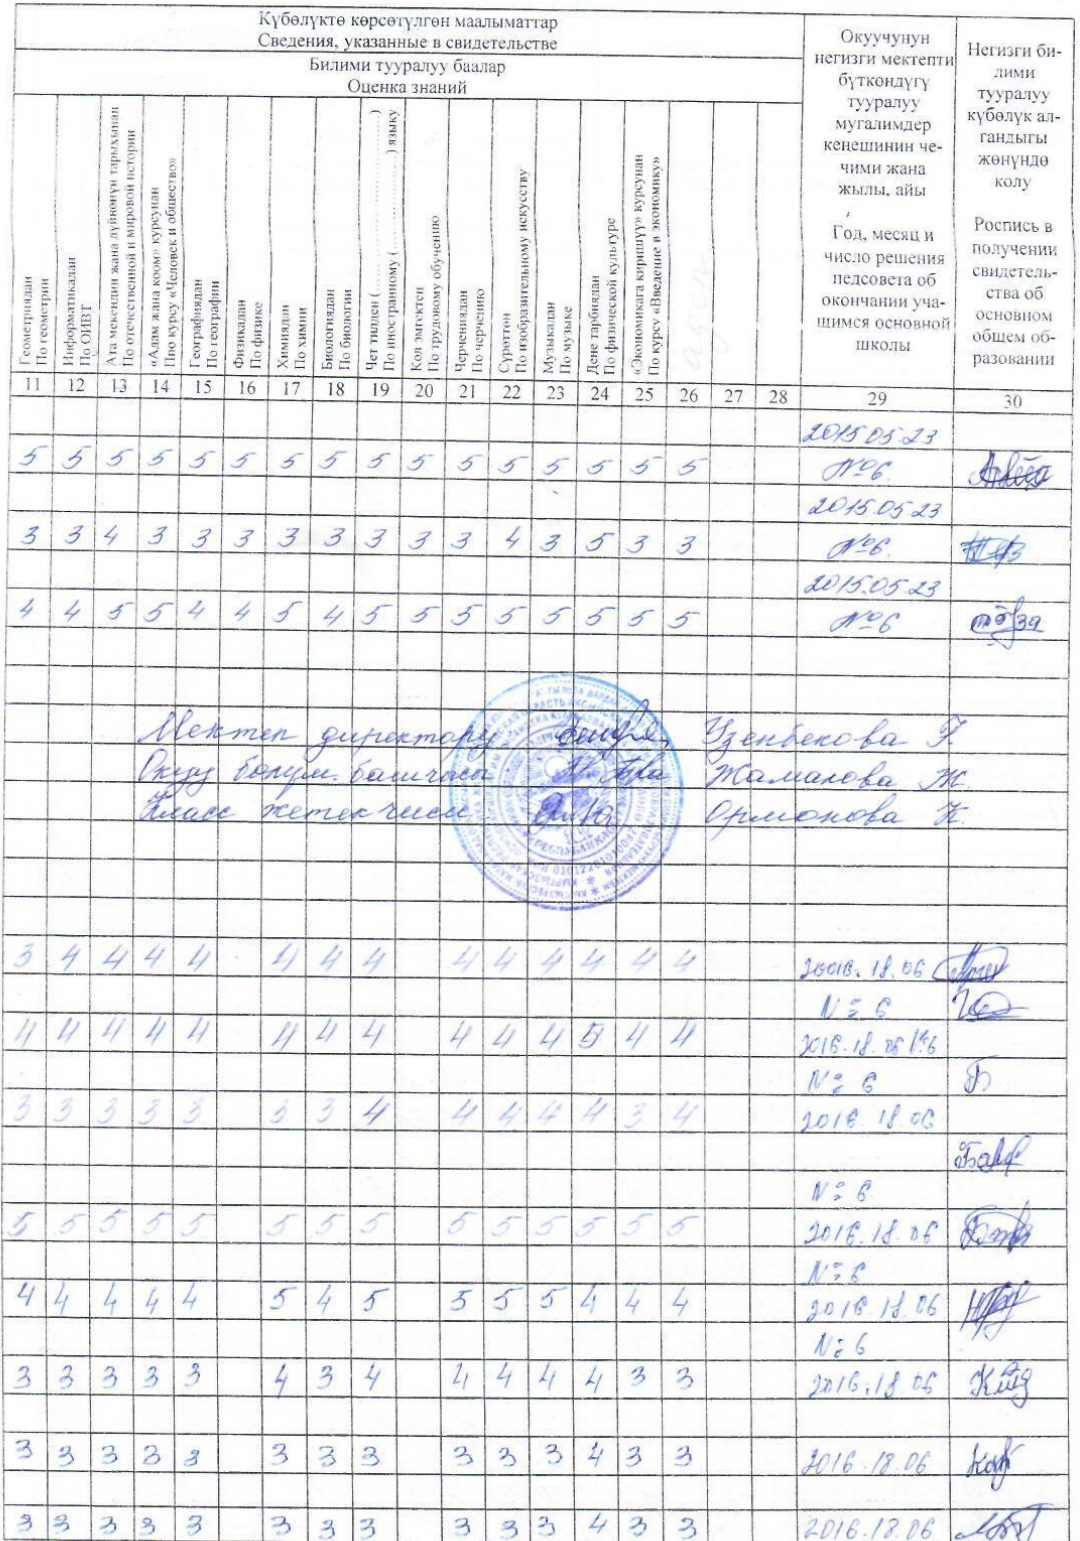 Күбөлүктө көрсөтүлгөн маалыматтар
Сведения, указанные в свидетельстве
Билими тууралуу баалар
Оценка знаний
Геометриядан
По геометрии
Информатикадан
По ОИВТ
Ата мекендин жана дүйнөнүн тарыхынан
По отечественной и мировой истории
«Адам жана коом» курсунан
Ппо курсу «Человек и общество»
Географиядан
По географии
Физикадан
По физике
Химиядан
По химии
Биологиядан
По биологии
Чет тилден (....................)
По иностранному (....................) языку
Кол эмгектен
По трудовому обучению
Черчениядан
По черчению
Сүрөттөн
По изобразительному искусству
Музыкадан
По музыке
Дене тарбиядан
По физической культуре
«Экономикага киришүү» курсунан
По курсу «Введение в экономику»
адеп
Окуучунун
негизги мектепти
бүткөндүгү
тууралуу
мугалимдер
кеңешинин че-
чими жана
жылы, айы
Год, месяц и
число решения
педсовета об
окончании уча-
щимся основной
школы
Негизги би-
лими
тууралуу
күбөлүк ал-
гандыгы
жөнүндө
колу
Роспись в
получении
свидетель-
ства об
основном
общем об-
разовании
11 12 13 14 15 16 17 18 19 20 21 22 23 24 25 26 27 28 29 30
2015 05 23
5 5 5 5 5 5 5 5 5 5 5 5 5 5 5 5 №6.
2015.05 23
3 3 4 3 3 3 3 3 3 3 3 4 3 5 3 3 №6.
2015.05 23
4 4 5 5 4 4 5 4 5 5 5 5 5 5 5 5 №6
Мектеп директору Узенбекова Г.
Окуу бөлүм. башчысы Жаманова Ж.
Класс жетекчиси Ормонова К.
3 4 4 4 4 4 4 4 4 4 4 4 4 4 20016. 18. 06
№ 6
4 4 4 4 4 4 4 4 4 4 4 5 4 4 2016. 18. 06 №6
№ 6 Б
3 3 3 3 3 3 3 4 4 4 4 4 3 4 2016 18. 06
№ 6
5 5 5 5 5 5 5 5 5 5 5 5 5 5 2016. 18. 06
№ 6
4 4 4 4 4 5 4 5 5 5 5 4 4 4 2016. 18. 06
№ 6
3 3 3 3 3 4 3 4 4 4 4 4 3 3 2016. 18 06
3 3 3 3 3 3 3 3 3 3 3 4 3 3 2016. 18. 06
3 3 3 3 3 3 3 3 3 3 3 4 3 3 2016. 18. 06